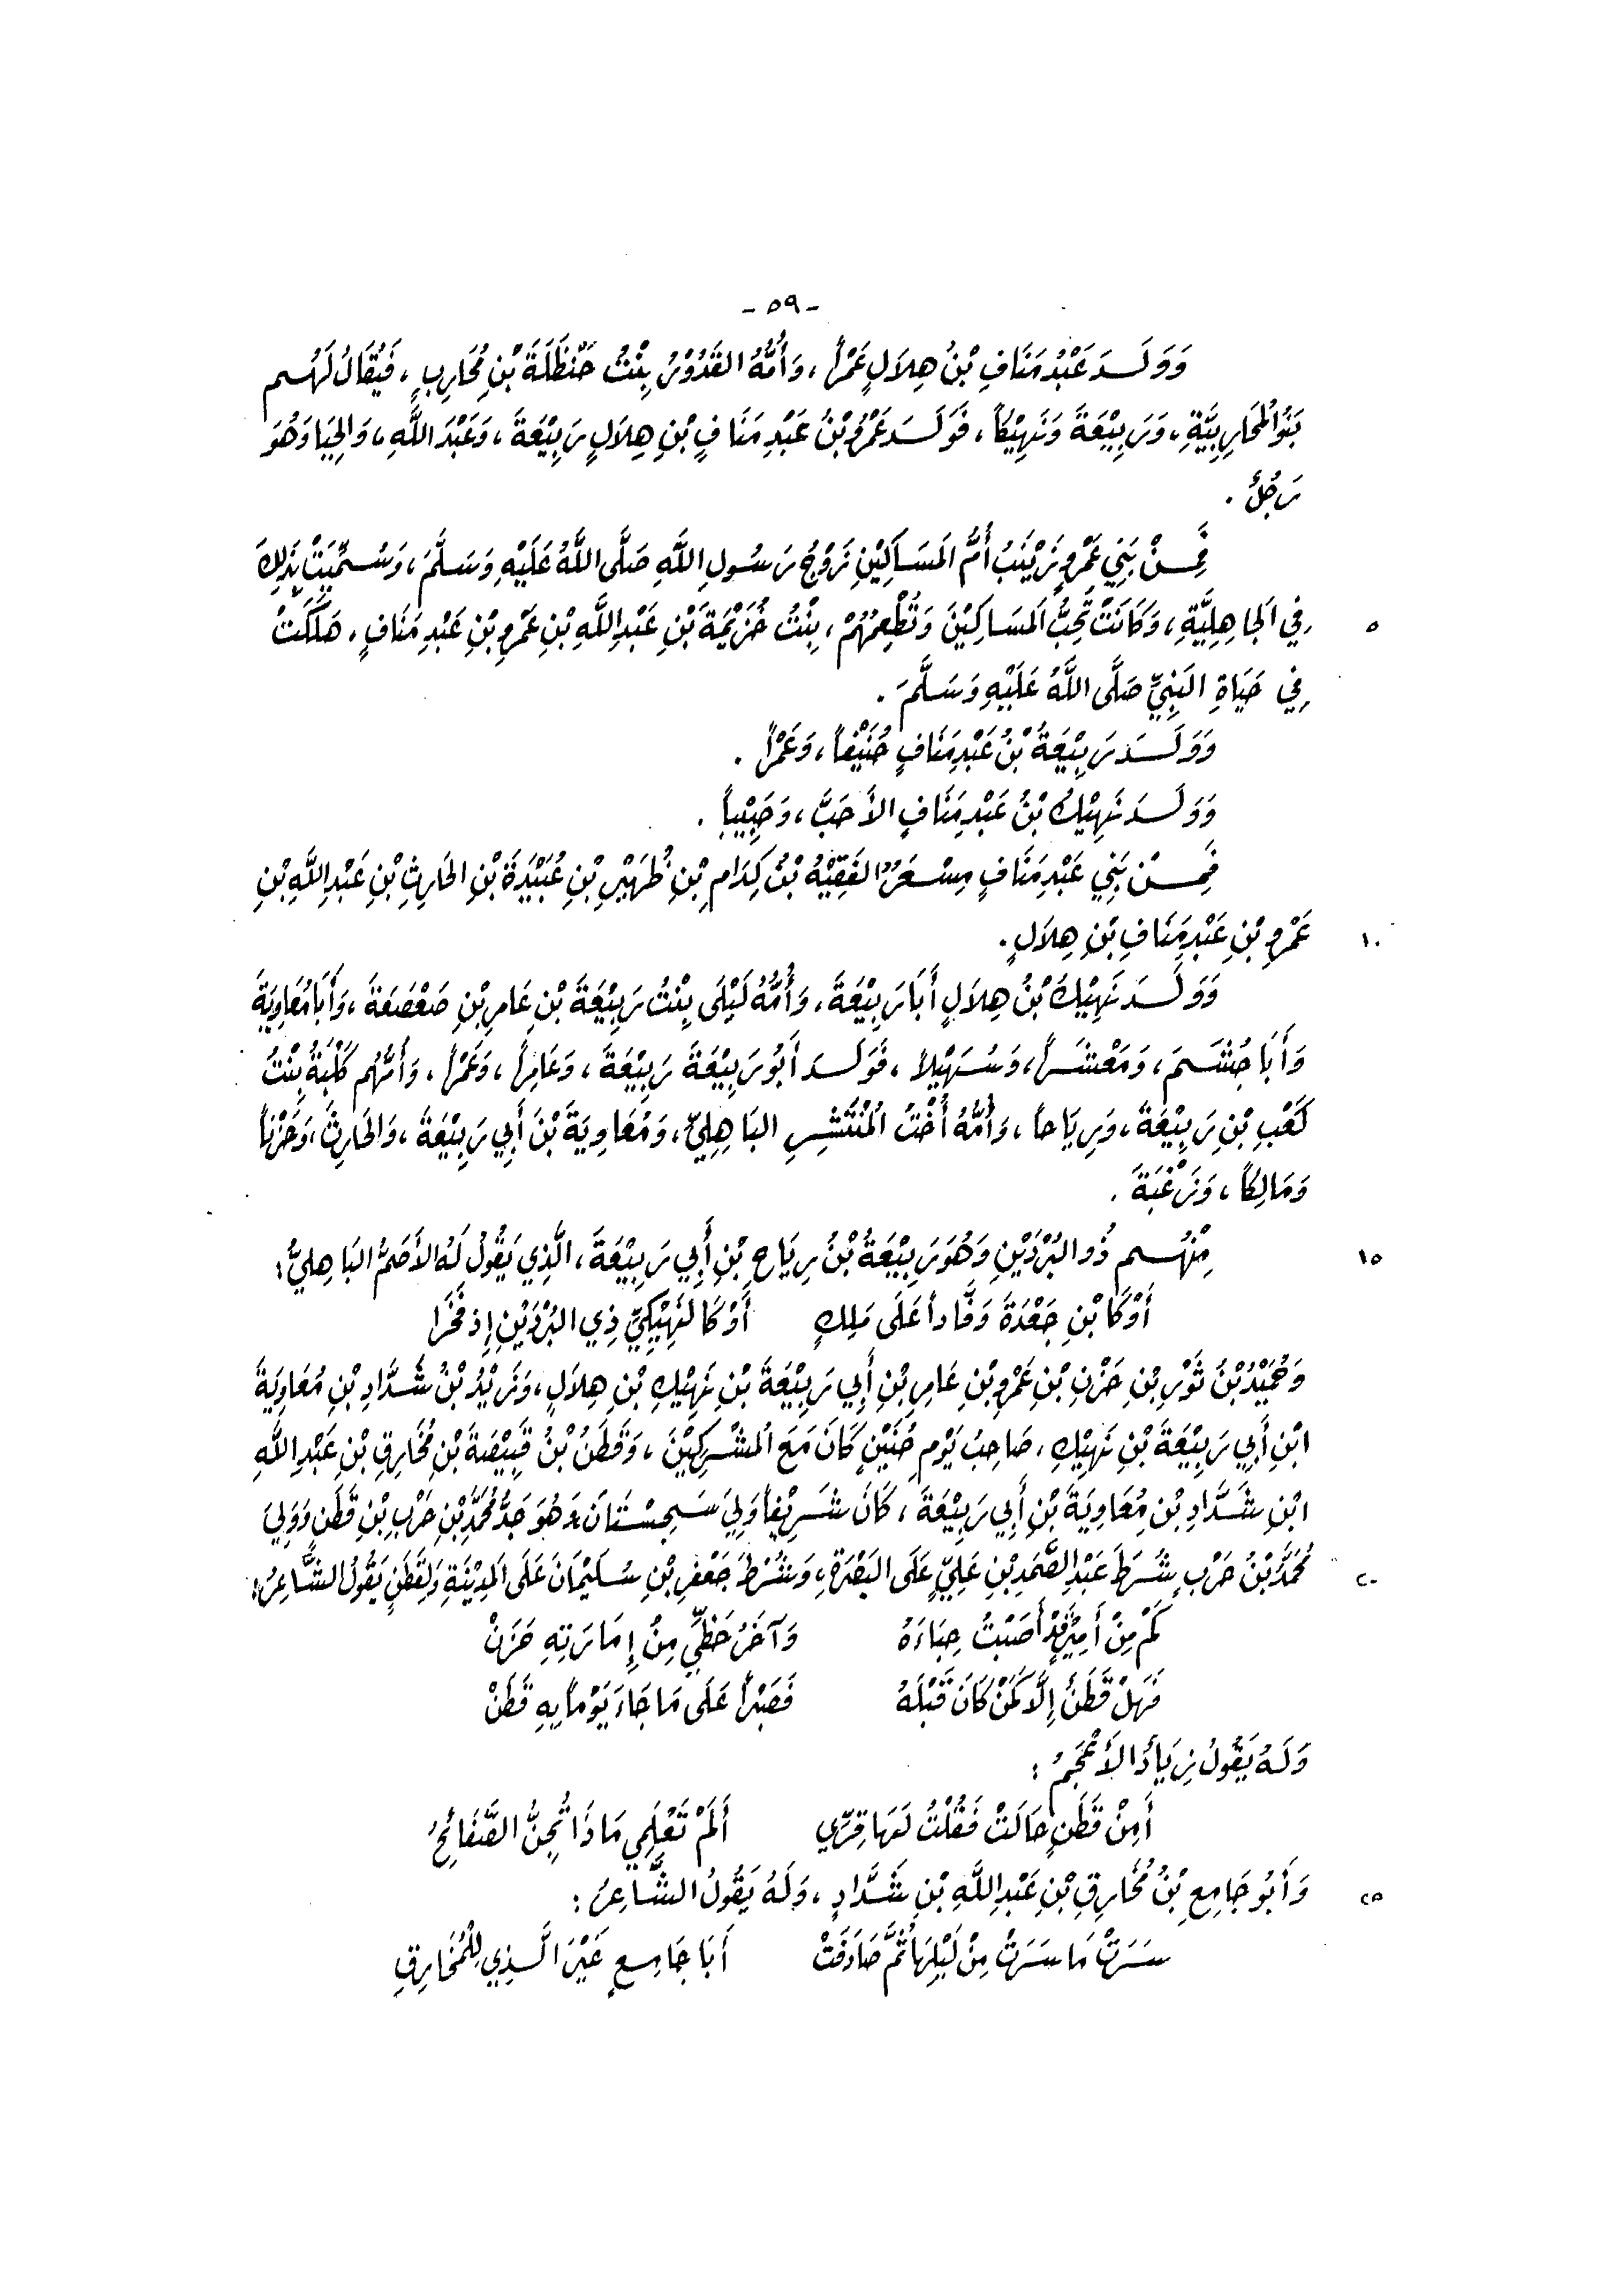 - ٥٩ -
وَوَلَدَ عَبْدُ مَنَافِ بْنُ هِلَالٍ عَمْراً، وَأُمُّهُ القَدُورُ بِنْتُ حَنْظَلَةَ بْنِ مُحَارِبٍ، فَيُقَالُ لَهُم
بَنُو المُحَارِبِيَّةِ، وَرَبِيْعَةَ وَنَهِيْكاً، فَوَلَدَ عَمْرُو بْنُ عَبْدِ مَنَافِ بْنِ هِلَالٍ رَبِيْعَةَ، وَعَبْدَ اللَّهِ، وَالحِيَا وَهُوَ
رَجُلٌ.
فَمِنْ بَنِي عَمْرٍو زَيْنَبُ أُمُّ المَسَاكِيْنِ زَوْجُ رَسُولِ اللَّهِ صَلَّى اللَّهُ عَلَيْهِ وَسَلَّمَ، وَسُمِّيَتْ بِذَلِكَ
٥ فِي الجَاهِلِيَّةِ، وَكَانَتْ تُحِبُّ المَسَاكِيْنَ وَتُطْعِمُهُمْ، بِنْتُ خُزَيْمَةَ بْنِ عَبْدِ اللَّهِ بْنِ عَمْرِو بْنِ عَبْدِ مَنَافٍ، هَلَكَتْ
فِي حَيَاةِ النَّبِيِّ صَلَّى اللَّهُ عَلَيْهِ وَسَلَّمَ.
وَوَلَدَ رَبِيْعَةُ بْنُ عَبْدِ مَنَافٍ حُنَيْفاً، وَعَمْراً.
وَوَلَدَ نَهِيْكُ بْنُ عَبْدِ مَنَافٍ الأَحَبَّ، وَحَبِيْباً.
فَمِنْ بَنِي عَبْدِ مَنَافٍ مِسْعَرٌ الفَقِيْهُ بْنُ كِدَامِ بْنِ ظُهَيْرِ بْنِ عُبَيْدَةَ بْنِ الحَارِثِ بْنِ عَبْدِ اللَّهِ بْنِ
١٠ عَمْرِو بْنِ عَبْدِ مَنَافِ بْنِ هِلَالٍ.
وَوَلَدَ نَهِيْكُ بْنُ هِلَالٍ أَبَا رَبِيْعَةَ، وَأُمُّهُ لَيْلَى بِنْتُ رَبِيْعَةَ بْنِ عَامِرِ بْنِ صَعْصَعَةَ، وَأَبَا مُعَاوِيَةَ
وَأَبَا جُشَمَ، وَمَعْشَراً، وَسُهَيْلاً، فَوَلَدَ أَبُو رَبِيْعَةَ رَبِيْعَةَ، وَعَامِراً، وَعَمْراً، وَأُمُّهُم كَلْبَةُ بِنْتُ
كَعْبِ بْنِ رَبِيْعَةَ، وَرِيَاحاً، وَأُمُّهُ أُخْتُ المُنْتَشِرِ البَاهِلِيِّ، وَمُعَاوِيَةَ بْنَ أَبِي رَبِيْعَةَ، وَالحَارِثَ، وَحَزْناً
وَمَالِكاً، وَزَغْبَةَ.
١٥ مِنْهُم ذُو البُرْدَيْنِ وَهُوَ رَبِيْعَةُ بْنُ رِيَاحِ بْنِ أَبِي رَبِيْعَةَ، الَّذِي يَقُولُ لَهُ الأَصَمُّ البَاهِلِيُّ:
أَوْ كَابْنِ جَعْدَةَ وَفَّاداً عَلَى مَلِكٍ أَوْ كَالنَّهِيْكِيِّ ذِي البُرْدَيْنِ إِذ فَخَرَا
وَحُمَيْدُ بْنُ ثَوْرِ بْنِ حَزْنِ بْنِ عَمْرِو بْنِ عَامِرِ بْنِ أَبِي رَبِيْعَةَ بْنِ نَهِيْكِ بْنِ هِلَالٍ، وَزَيْدُ بْنُ شَدَّادِ بْنِ مُعَاوِيَةَ
ابْنِ أَبِي رَبِيْعَةَ بْنِ نَهِيْكِ، صَاحِبُ يَوْمِ حُنَيْنٍ كَانَ مَعَ المُشْرِكِيْنَ، وَقَطَنُ بْنُ قَبِيْصَةَ بْنِ مُخَارِقِ بْنِ عَبْدِ اللَّهِ
ابْنِ شَدَّادِ بْنِ مُعَاوِيَةَ بْنِ أَبِي رَبِيْعَةَ، كَانَ شَرِيْفاً وَلِيَ سَجِسْتَانَ وَهُوَ جَدُّ مُحَمَّدِ بْنِ حَرْبِ بْنِ قَطَنٍ وَوَلِيَ
٢٠ مُحَمَّدُ بْنُ حَرْبٍ شُرَطَ عَبْدِ الصَّمَدِ بْنِ عَلِيٍّ عَلَى البَصْرَةِ، وَشُرَطَ جَعْفَرِ بْنِ سُلَيْمَانَ عَلَى المَدِيْنَةِ وَلِقَطَنٍ يَقُولُ الشَّاعِرُ:
كَمْ مِنْ أَمِيْرٍ قَدْ أَصَبْتُ حِبَاءَهُ وَآخَرُ حَظِّي مِنْ إِمَارَتِهِ حَزَنْ
فَهَلْ قَطَنٌ إِلَّا كَمَنْ كَانَ قَبْلَهُ فَصَبْراً عَلَى مَا جَاءَ يَوْماً بِهِ قَطَنْ
وَلَهُ يَقُولُ زِيَادٌ الأَعْجَمُ:
أَمِنْ قَطَنٍ حَالَتْ فَقُلْتُ لَهَا قِرِّي أَلَمْ تَعْلَمِي مَاذَا تُجِنُّ الصَّفَائِحُ
٢٥ وَأَبُو جَامِعِ بْنُ مُخَارِقِ بْنِ عَبْدِ اللَّهِ بْنِ شَدَّادٍ، وَلَهُ يَقُولُ الشَّاعِرُ:
سَرَتْ مَا سَرَتْ مِنْ لَيْلِهَا ثُمَّ صَادَفَتْ أَبَا جَامِعٍ غَيْرَ الَّذِي لِلْمُخَارِقِ